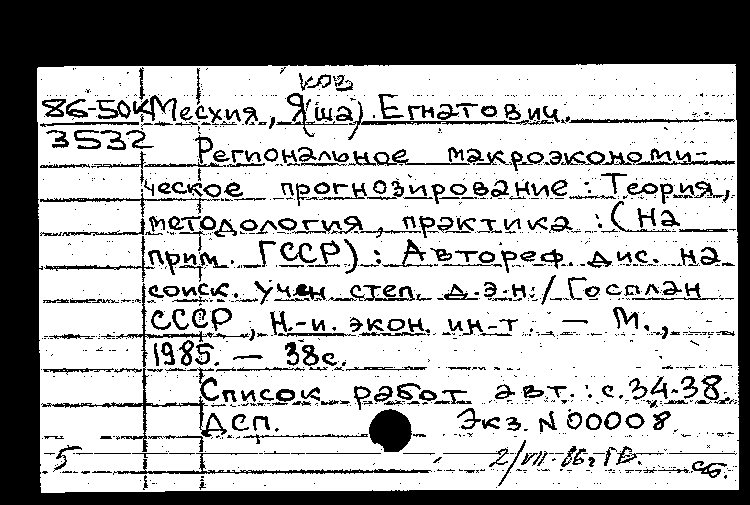 коз
86-50к Месхия, Я(ша) Егнатович.
3532
Региональное макроэкономи-
ческое прогнозирование : Теория,
методология, практика : (На
прим. ГССР) : Автореф. дис. на
соиск. учен степ. д.э.н. / Госплан
СССР, Н.-и. экон. ин-т. — М.,
1985. — 38с.
Список работ авт. : с.34-38.
ДСП. Экз. N 00008.
5 2/VII-86г